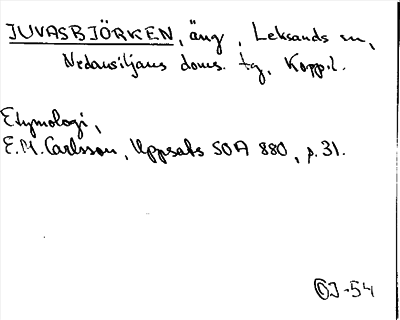 JUVASBJÖRKEN, äng, Leksands sn,
Nedansiljans doms. tg, Kopp.l.
Etymologi,
E.M. Carlsson, Uppsats SOA 880, p. 31.
OJ-54